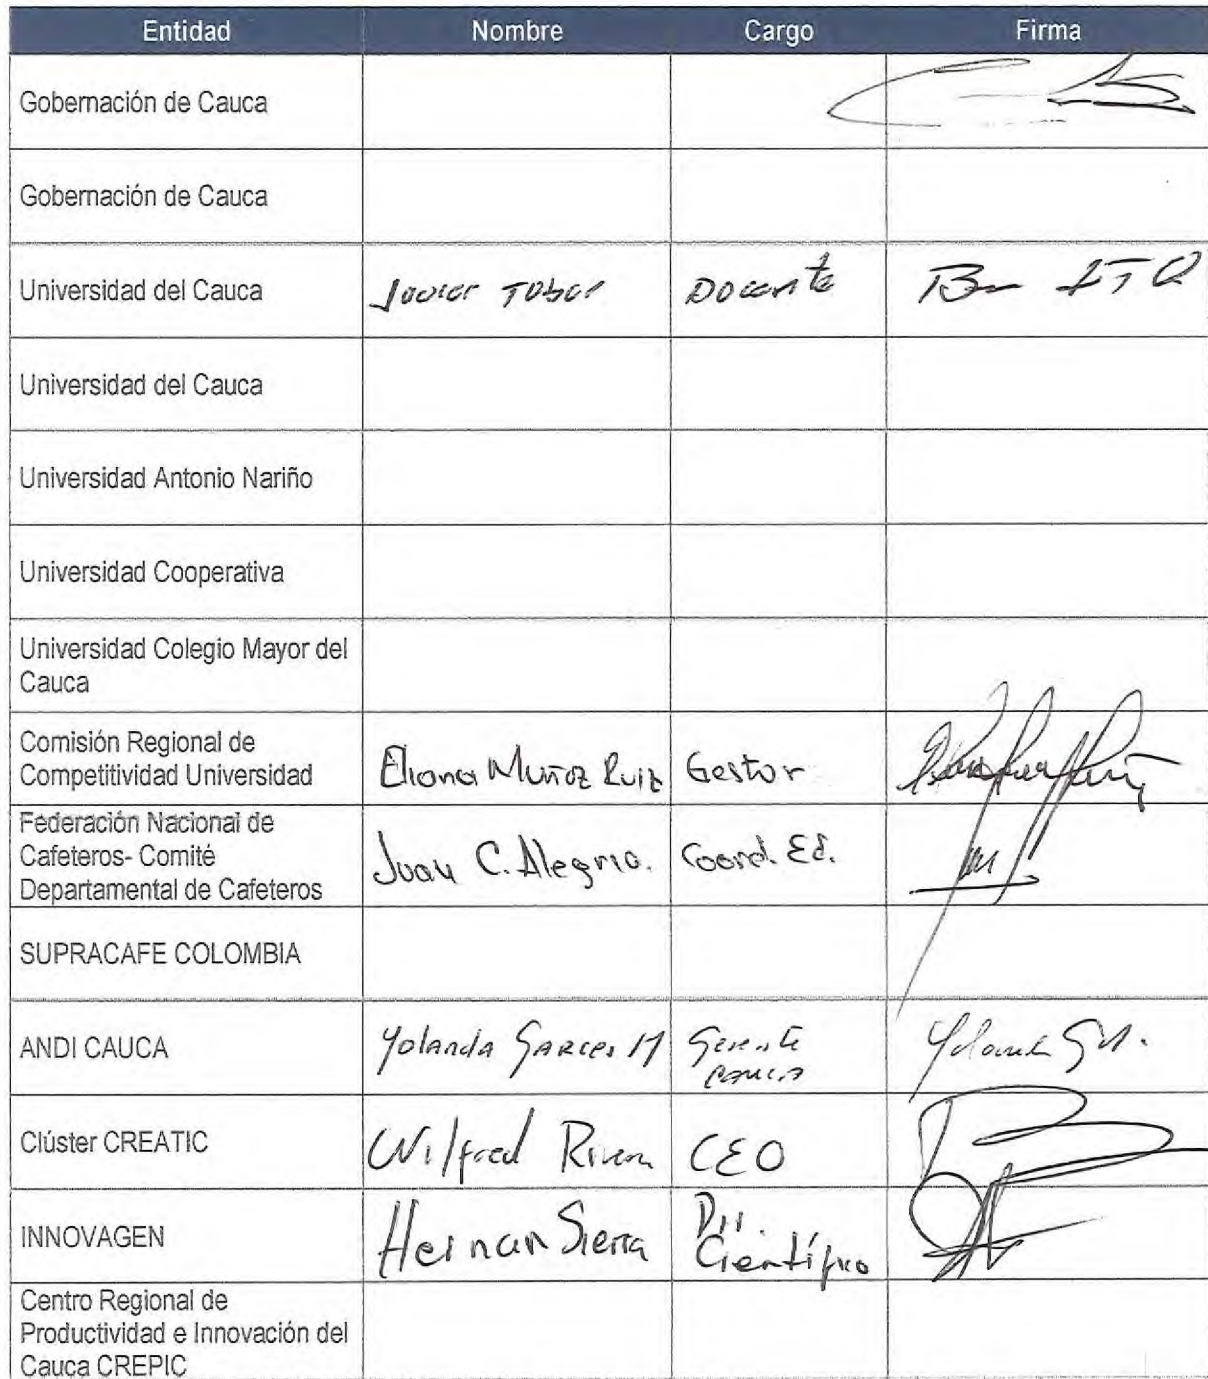 Entidad Nombre Cargo Firma
Gobernación de Cauca
Gobernación de Cauca
Universidad del Cauca Javier Tobar Docente
Universidad del Cauca
Universidad Antonio Nariño
Universidad Cooperativa
Universidad Colegio Mayor del
Cauca
Comisión Regional de
Competitividad Universidad Eliana Muñoz Ruiz Gestor
Federación Nacional de
Cafeteros- Comité
Departamental de Cafeteros Juan C. Alegria. Coord. Ed.
SUPRACAFE COLOMBIA
ANDI CAUCA Yolanda Garces M Gerente
Cauca
Clúster CREATIC Wilfred Rivera CEO
INNOVAGEN Hernan Sierra Dir.
Científico
Centro Regional de
Productividad e Innovación del
Cauca CREPIC